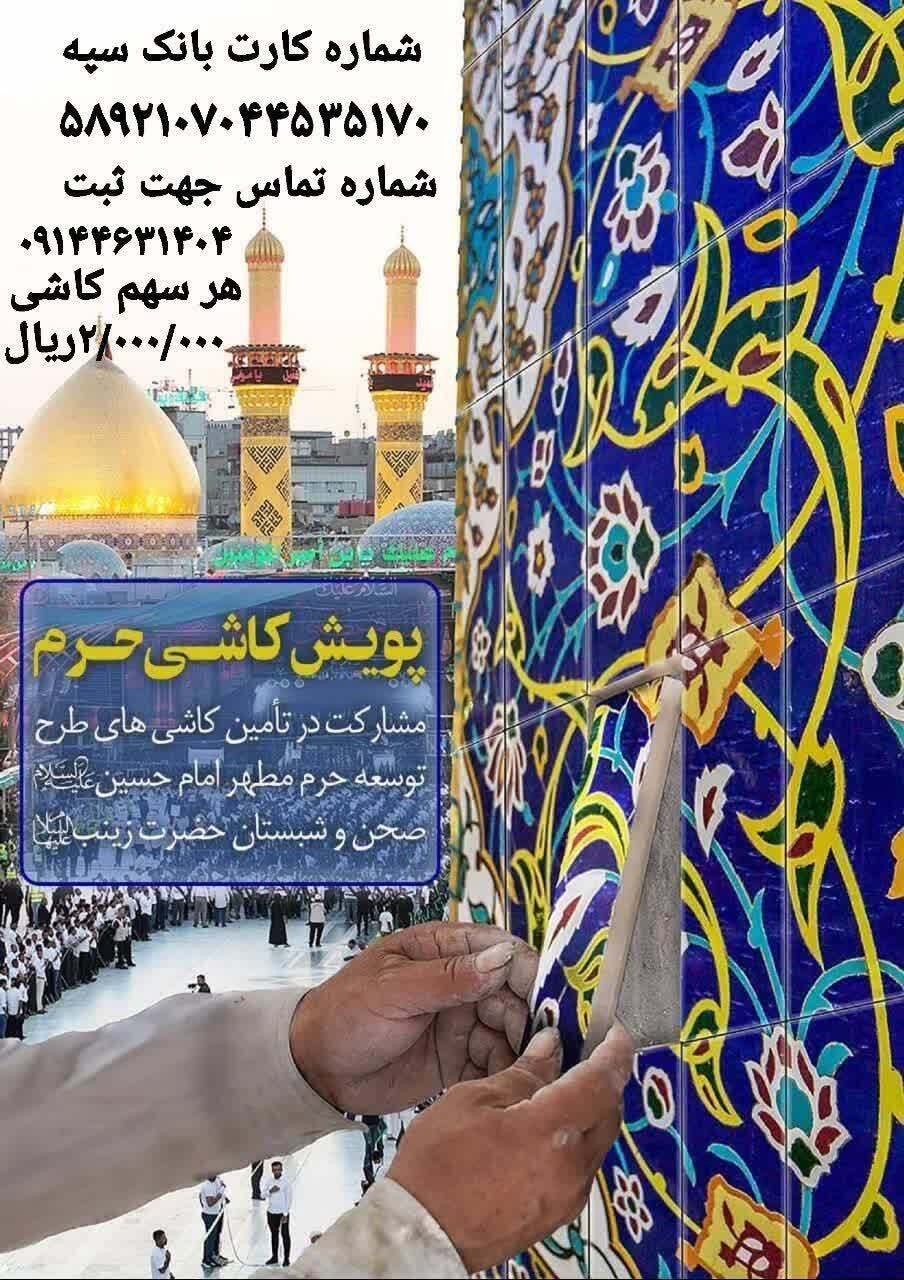 شماره کارت بانک سپه
۵۸۹۲۱۰۷۰۴۴۵۳۵۱۷۰
شماره تماس جهت ثبت
۰۹۱۴۴۶۳۱۴۰۴
هر سهم کاشی
۲/۰۰۰/۰۰۰ریال
السلام علیک
پویش کاشی حرم
مشارکت در تأمین کاشی های طرح
توسعه حرم مطهر امام حسین علیه‌السلام
صحن و شبستان حضرت زینب